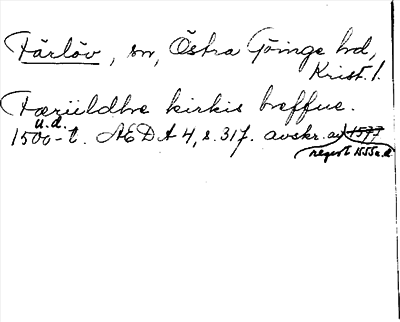 Färlöv, sn, Östra Göinge hd,
Krist. l.
Færiildhre kirkis breffue.
u.d.
1500-t. ÆDA 4, s. 317. avskr. av 1577
regest 1555 o.d